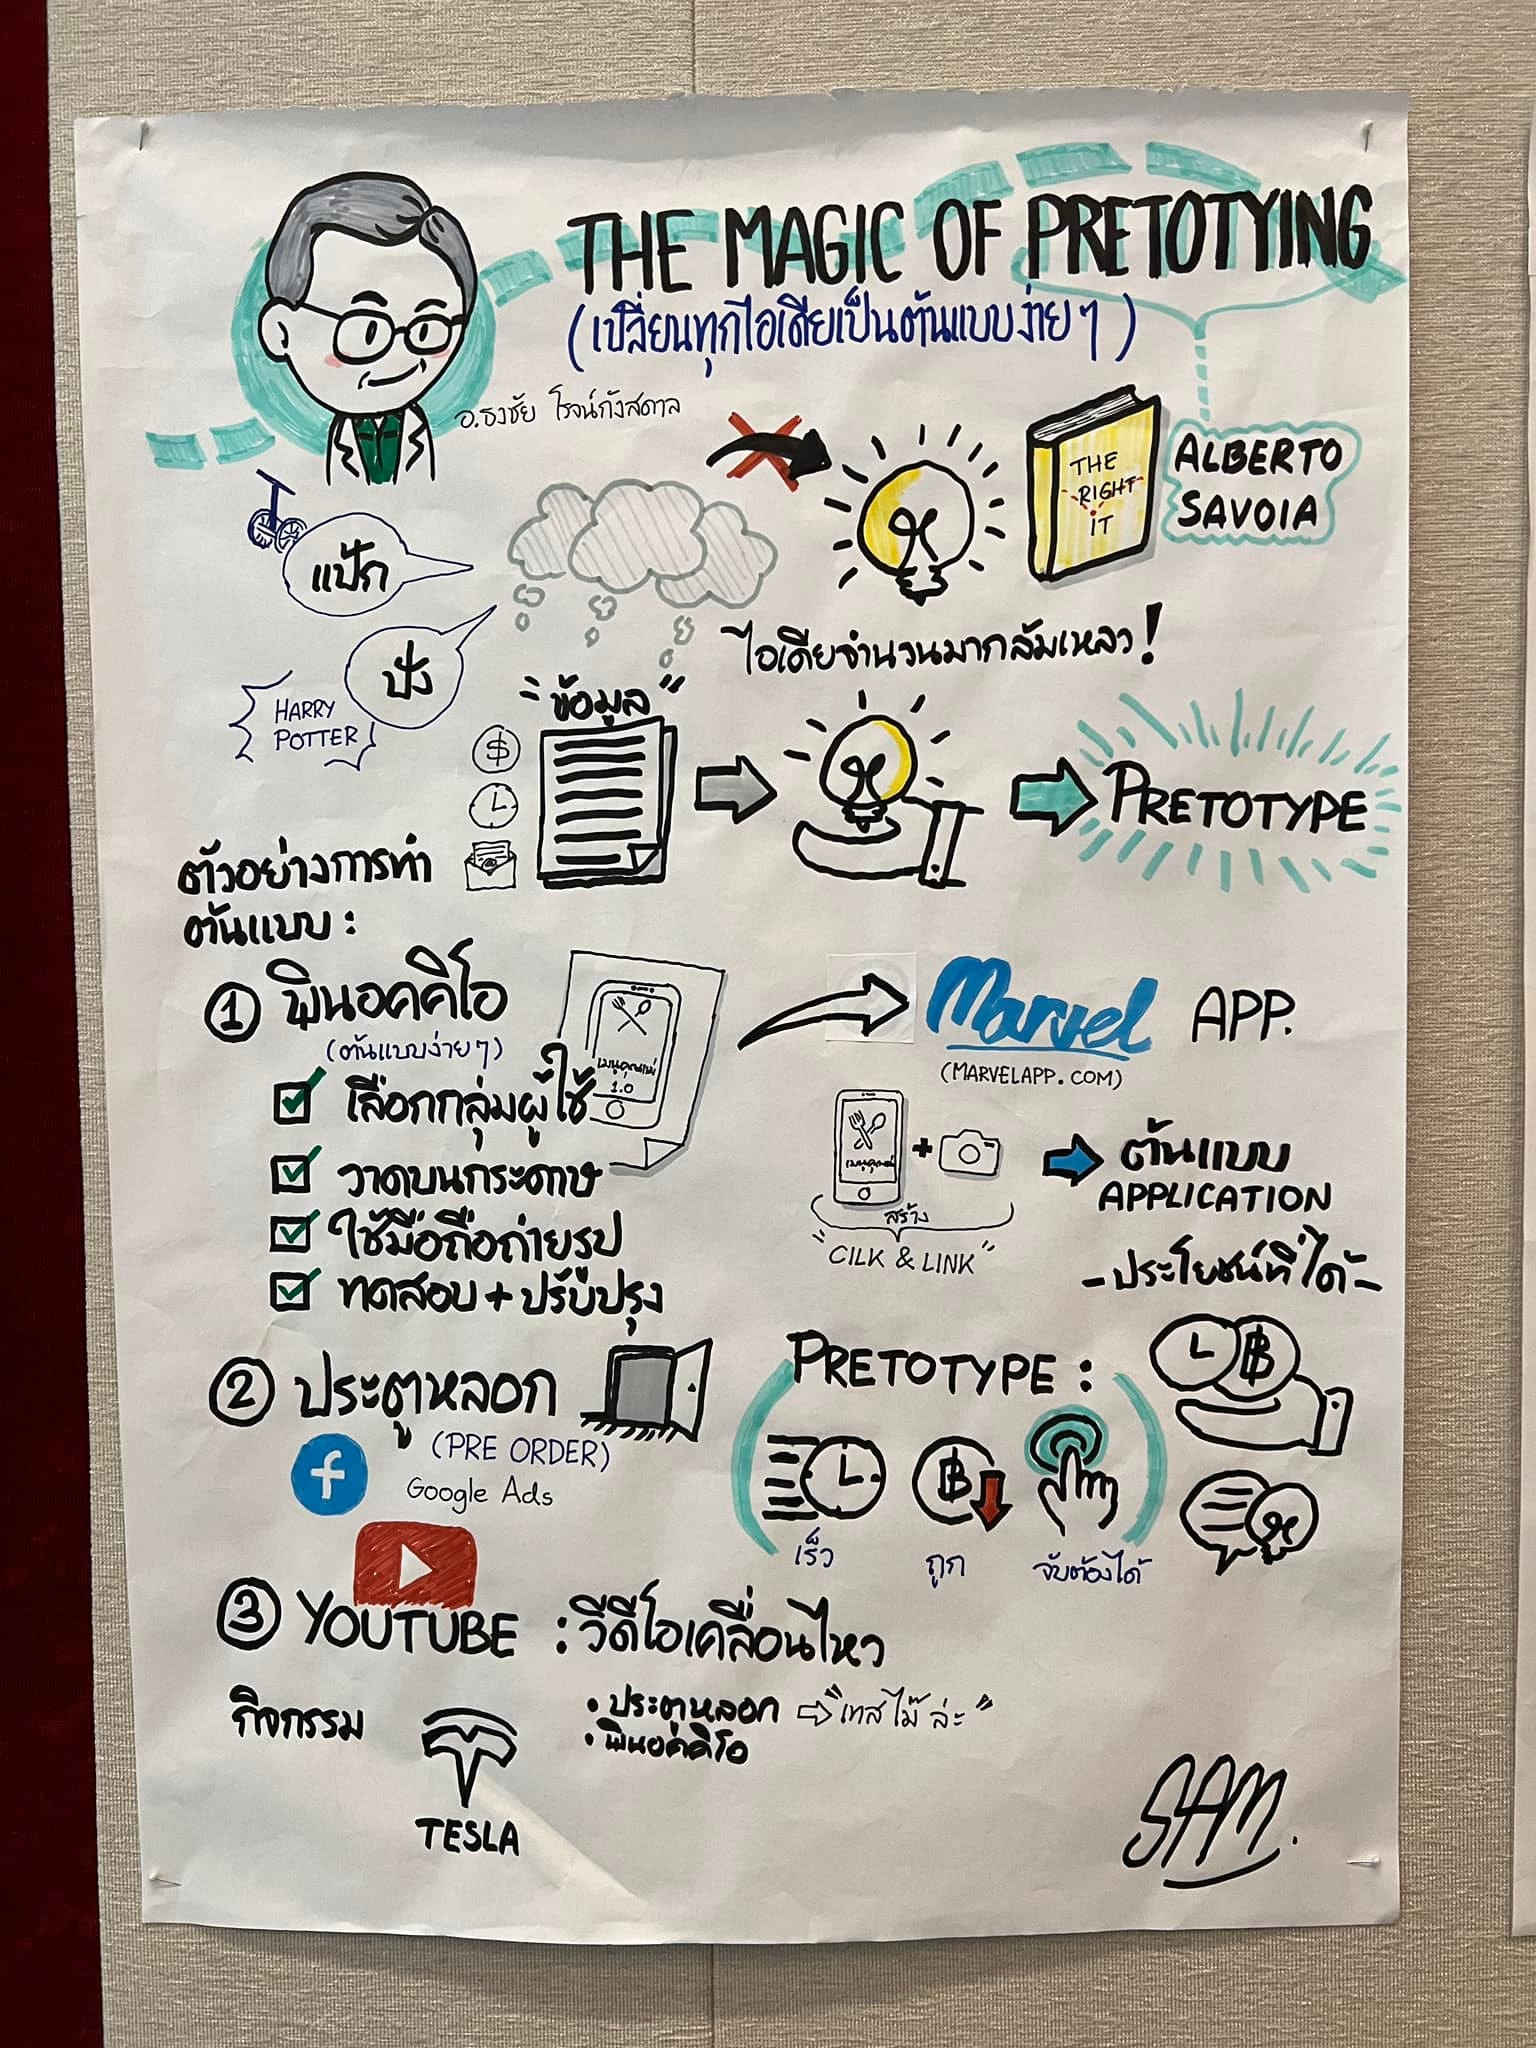 THE MAGIC OF PRETOTYING
(เปลี่ยนทุกไอเดียเป็นต้นแบบง่ายๆ)
อ.ธงชัย โรจน์กังสดาล
THE
RIGHT
iT
ALBERTO
SAVOIA
แป้ก
ปัง
HARRY
POTTER
ไอเดียจำนวนมากล้มเหลว!
"ข้อมูล"
$
PRETOTYPE
ตัวอย่างการทำ
ต้นแบบ :
1 พินอคคิโอ
(ต้นแบบง่ายๆ)
เลือกกลุ่มผู้ใช้
วาดบนกระดาษ
ใช้มือถือถ่ายรูป
ทดสอบ + ปรับปรุง
เมนูคุณแม่
1.0
Marvel APP.
(MARVELAPP.COM)
+
สร้าง
"CILK & LINK"
ต้นแบบ
APPLICATION
- ประโยชน์ที่ได้ -
฿
2 ประตูหลอก
(PRE ORDER)
f
Google Ads
PRETOTYPE :
฿
เร็ว
ถูก
จับต้องได้
3 YOUTUBE : วีดีโอเคลื่อนไหว
กิจกรรม
TESLA
• ประตูหลอก ⇨ "เทสไม๊ล่ะ"
• พินอคคิโอ
SAM.